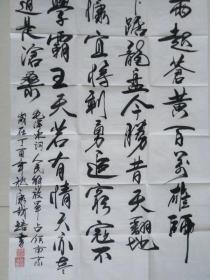 雨起苍黄百万雄师
踞龙盘今胜昔天翻地
慷宜将剩勇追穷寇不
学霸王天若有情天亦老
道是沧桑
毛泽东词人民解放军占领南京
岁在丁酉年秋
书